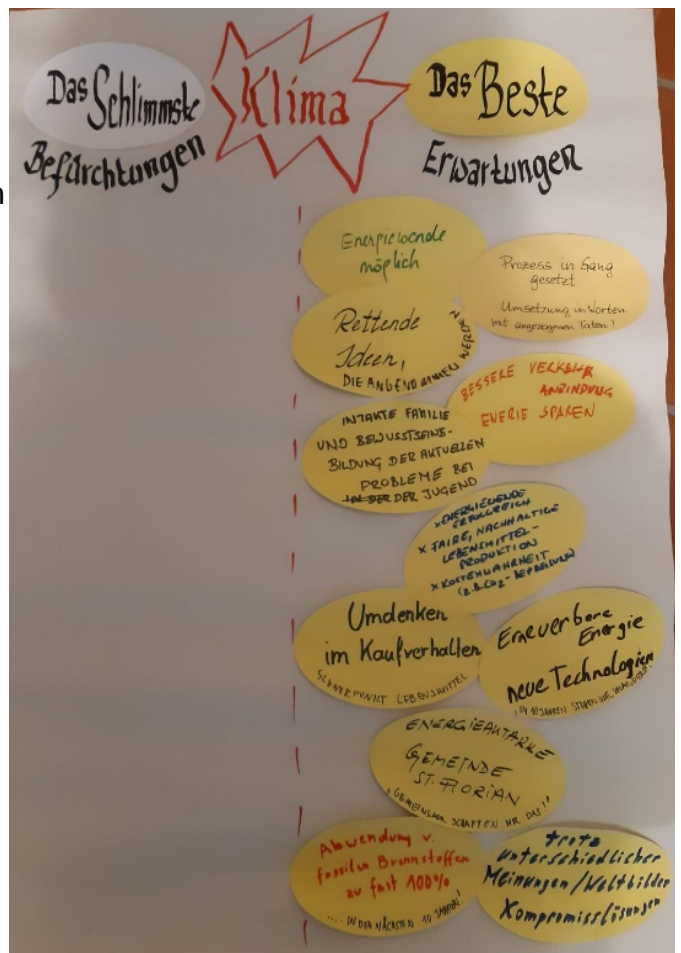 Das Schlimmste
Befürchtungen
Klima
Das Beste
Erwartungen
n
Energiewende
möglich
Prozess in Gang
gesetzt
Umsetzung in Worten
mit angezogenen Taten!
Rettende
Ideen,
DIE ANGENOMMEN WERDEN
BESSERE VERKEHR
ANBINDUNG
ENERIE SPAREN
INTAKTE FAMILIE
UND BEWUSSTSEINS-
BILDUNG DER AKTUELLEN
PROBLEME BEI
IN DER DER JUGEND
x ENERGIEWENDE
ERFOLGREICH
x FAIRE, NACHHALTIGE
LEBENSMITTEL-
PRODUKTION
x KOSTENWAHRHEIT
(z.B. CO2-BEPREISUNG)
Umdenken
im Kaufverhalten
SCHWERPUNKT LEBENSMITTEL
Erneuerbare
Energie
neue Technologien
IN 10 JAHREN STEHEN WIR
ENERGIEAUTARKE
GEMEINDE
ST. FLORIAN
"GEMEINSAM SCHAFFEN WIR DAS!"
Abwendung v.
fossilen Brennstoffen
zu fast 100%
.... IN DEN NÄCHSTEN 10 JAHREN!
trotz
unterschiedlicher
Meinungen/Weltbilder
Kompromisslösungen